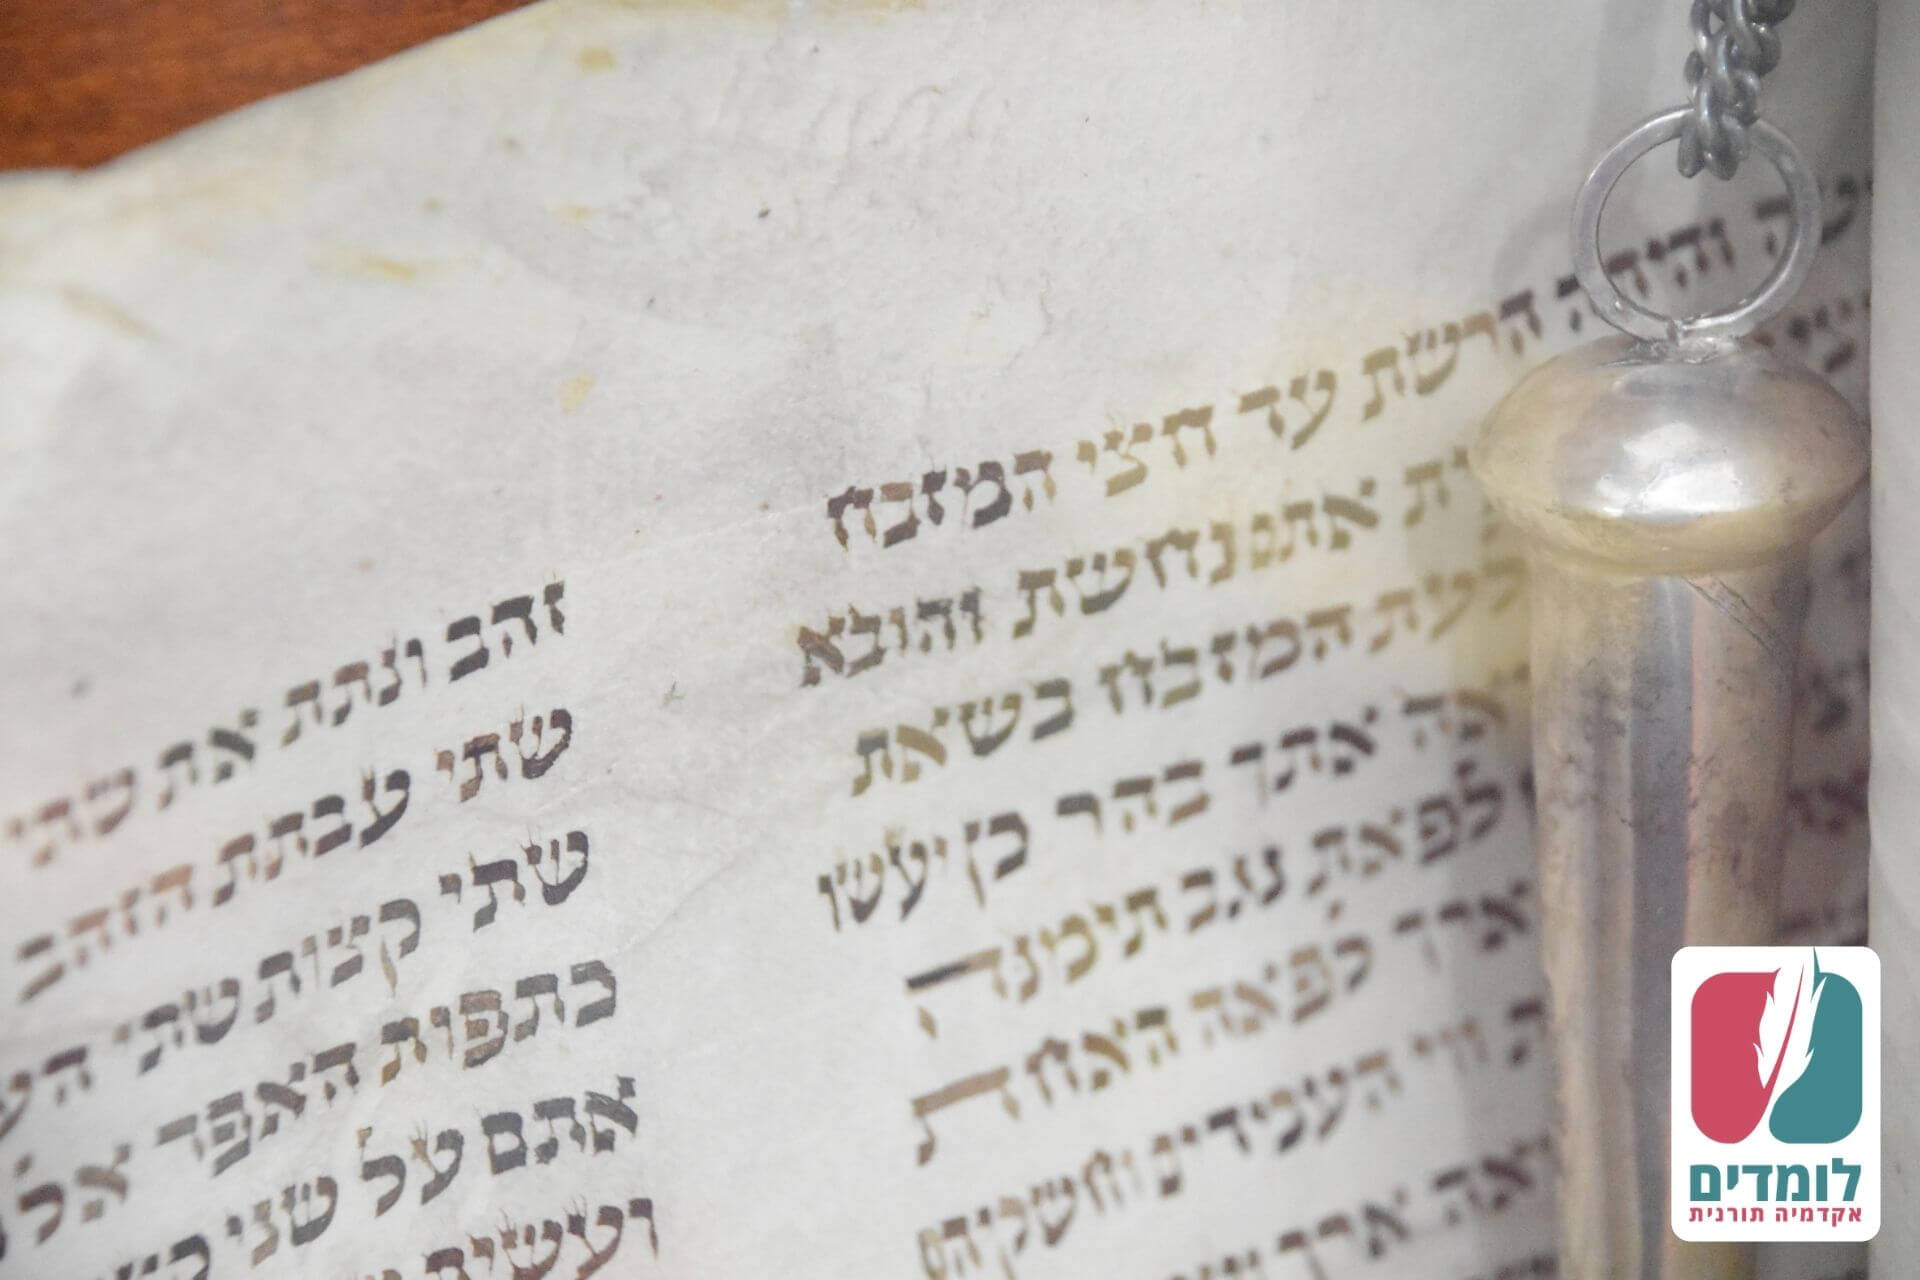 והיתה הרשת עד חצי המזבח
אתם נחשת והובא
המזבח בשאת
אתך בהר כן יעשו
לפאת נגב תימנה
ארך לפאה האחת
ווי העמדים וחשקיהם
ארך
זהב ונתת את שתי
שתי עבתת הזהב
שתי קצות שתי
כתפות האפד אל
אתם על שני
ועשית
לומדים
אקדמיה תורנית